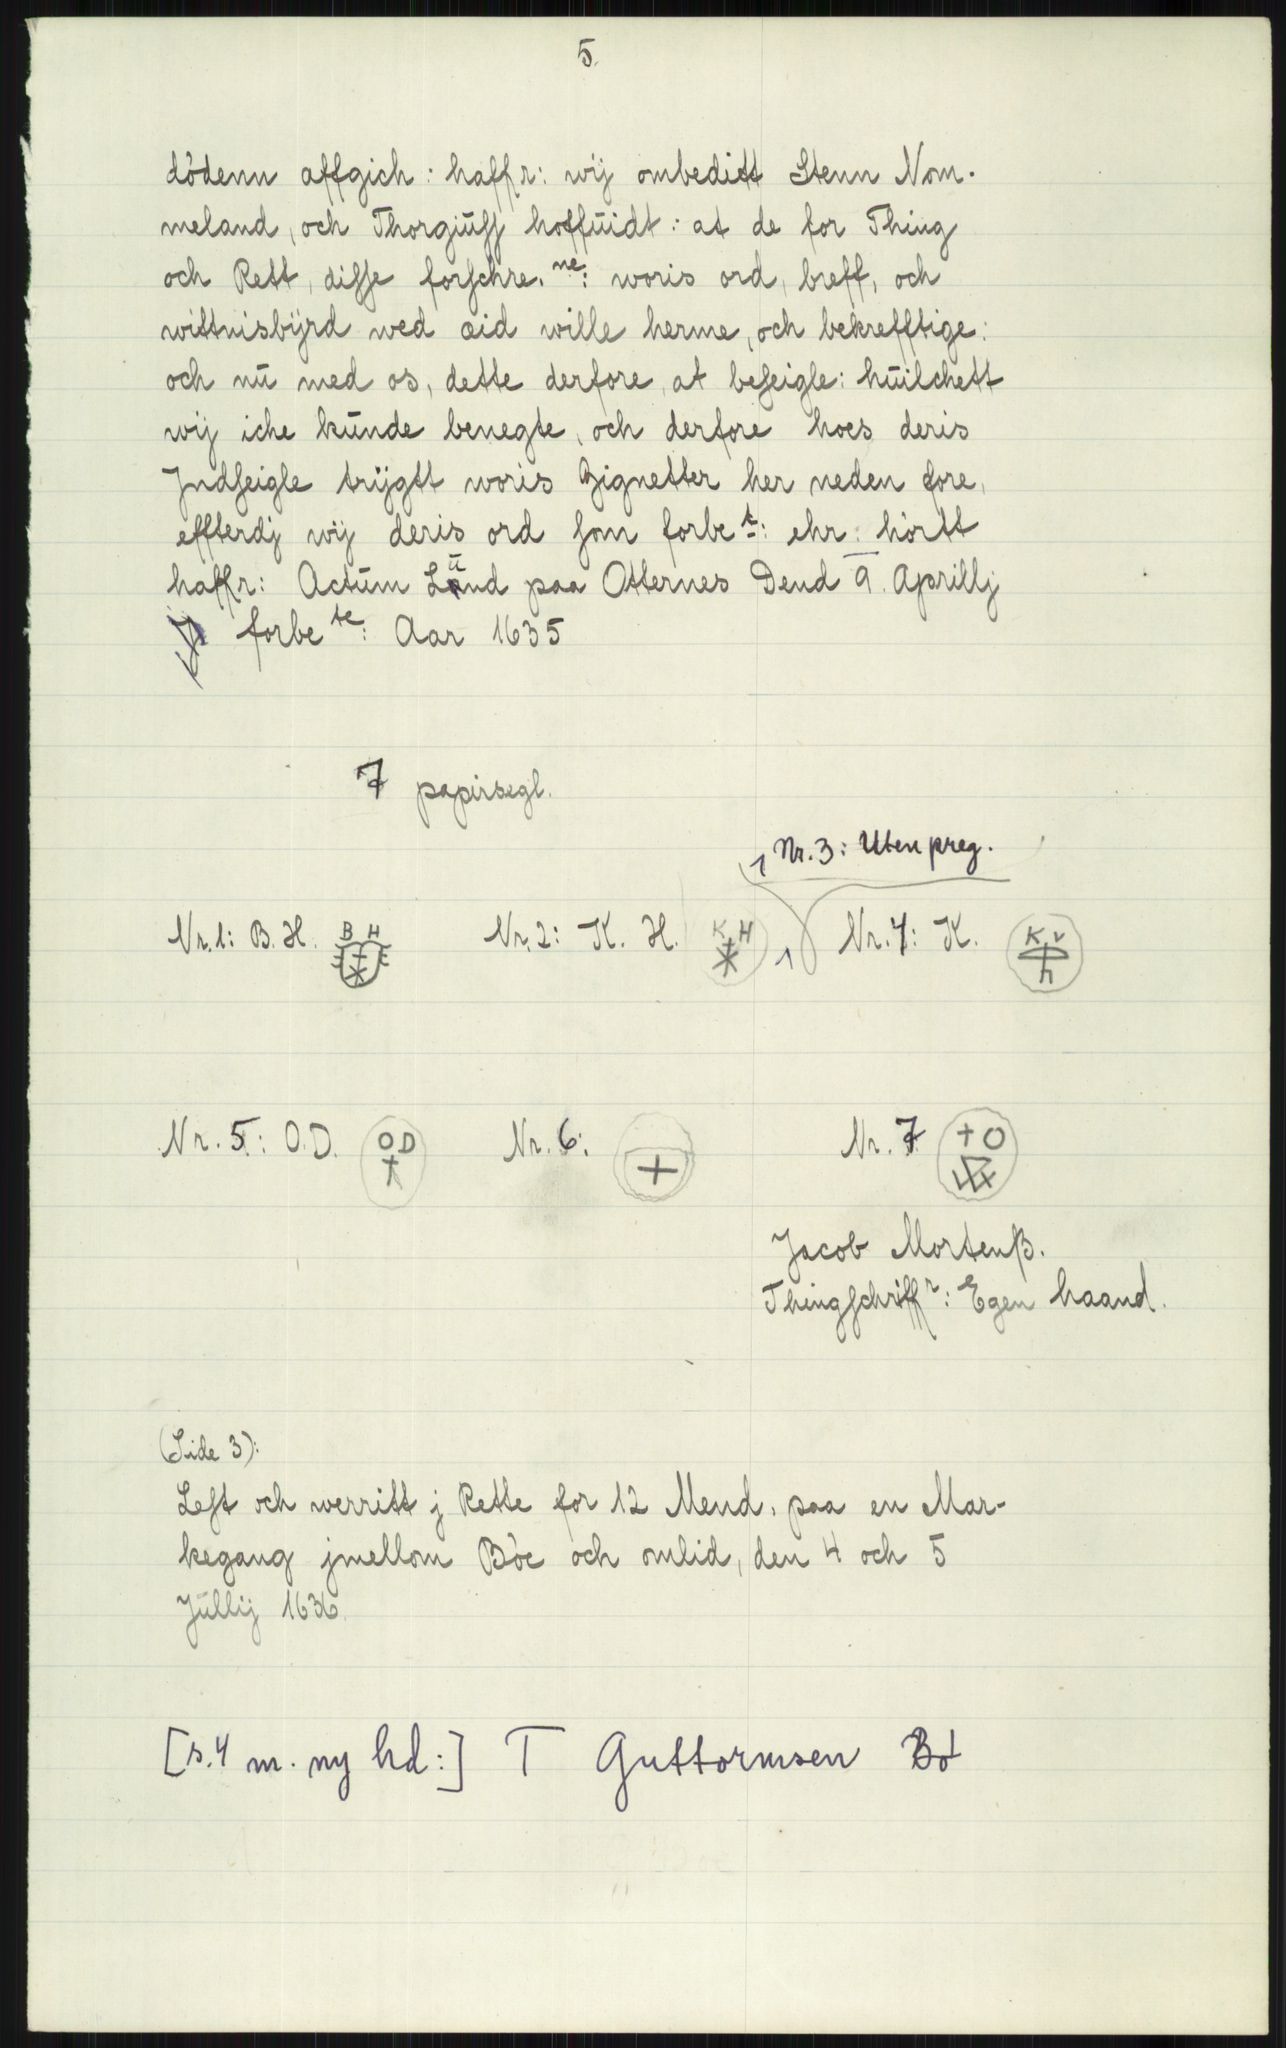 5.
dödenn affgich: haffr: wij ombeditt Stenn Nom-
meland, och Thorgiulff hoffuidt: at de for Thing
och Rett, disse forschre.ne: woris ord, breff, och
wittnisbÿrd wed æid wille herme, och bekrefftige:
och nu med os, dette derfore, at beseigle: huilchett
wij iche kunde benegte, och derfore hoes deris
Indseigle trÿgtt woris Zignetter her neden fore,
effterdj wij deris ord som forbe t: ehr: hörtt
haffr: Actum Lund paa Otternes Dend 9. Aprillj
forbe te: Aar 1635
7 papirsegl.
Nr. 3: Uten preg.
Nr. 1: B. H. B H
Nr. 2: K. H. K H
Nr. 4: K. K v h
Nr. 5: O.D. O D
Nr. 6:
Nr. 7 + O
Jacob Mortenß.
Thingschriff r: Egen haand.
(Side 3):
Lest och werritt j Rette for 12 Mend, paa en Mar-
kegang jmellom Böe och omlid, den 4 och 5
Jullij 1636.
[s. 4 m. ny hd:] T Guttormsen Bö